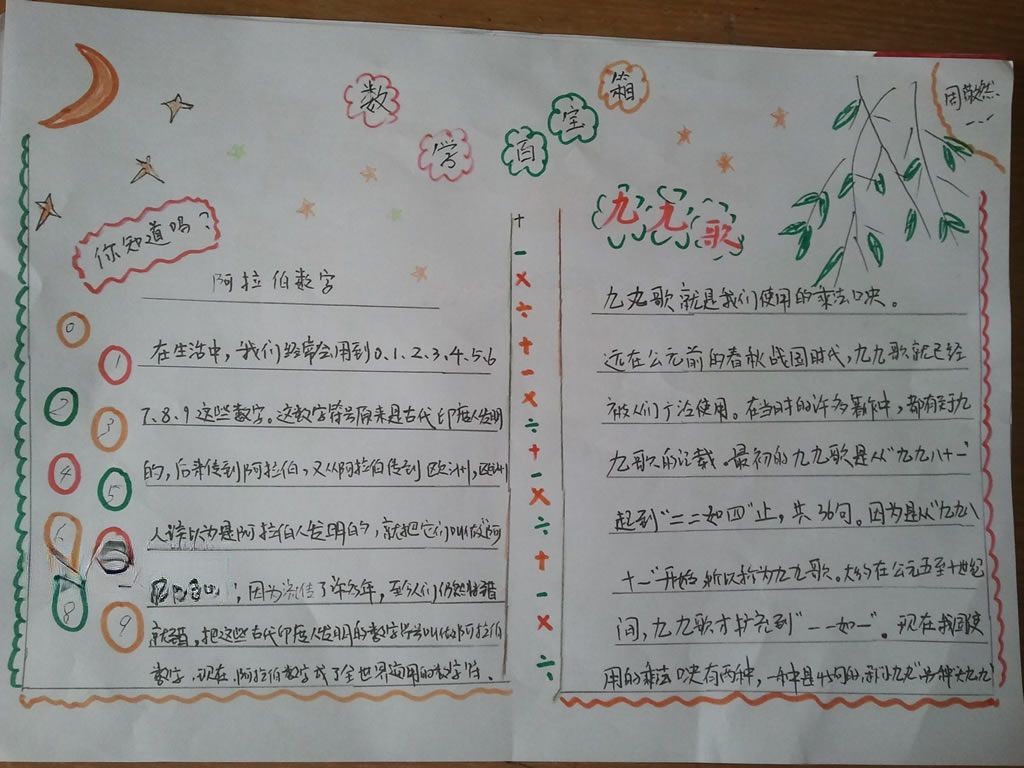 数学百宝箱
周敬然
你知道吗?
阿拉伯数字
0
1
2
3
4
5
6
8
9
在生活中,我们经常会用到0、1、2、3、4、5、6
7、8、9这些数字。这数字符号原来是古代印度人发明
的,后来传到阿拉伯,又从阿拉伯传到欧洲,欧洲
人误以为是阿拉伯人发明的,就把它们叫做“阿
;因为流传了许多年,至今人们仍然将错
就错,把这些古代印度人发明的数字符号叫做阿拉伯
数字,现在,阿拉伯数字成了全世界通用的数字符。
+
-
×
÷
+
-
×
÷
+
-
×
÷
+
-
×
÷
九九歌
九九歌就是我们使用的乘法口决。
远在公元前的春秋战国时代,九九歌就已经
被人们广泛使用。在当时的许多著作中,都有对九
九歌的记载。最初的九九歌是从“九九八十一”
起到“二二如四”止,共36句。因为是从“九九八
十一”开始,所以称为九九歌。大约在公元五至十世纪
间,九九歌才扩充到“一一如一”。现在我国使
用的乘法口决有两种,一种是45句的,称“小九九”另一种“大九九